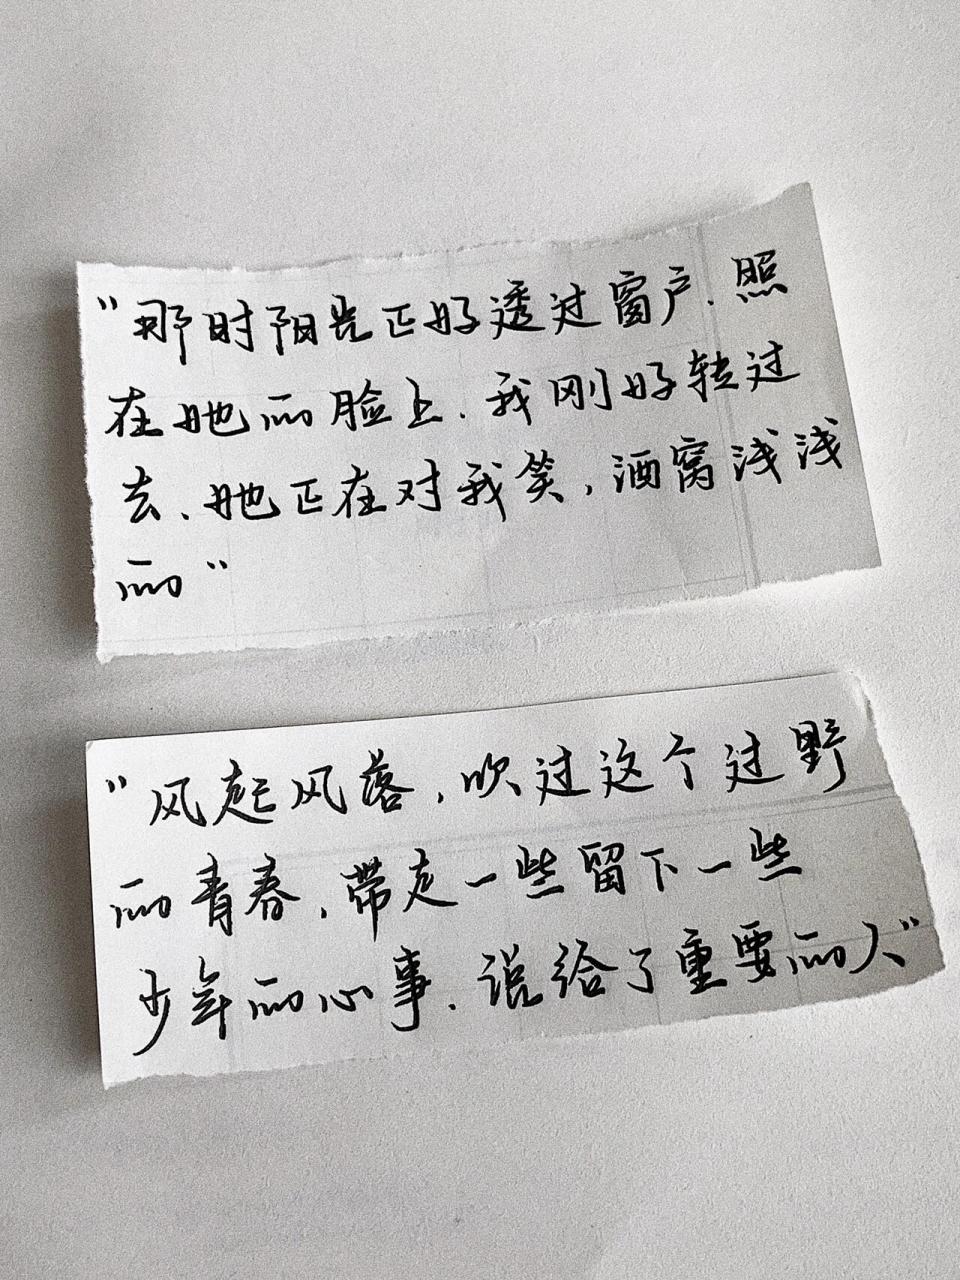 "那时阳光正好透过窗户.照
在她的脸上.我刚好转过
去、她正在对我笑,酒窝浅浅
的"
"风起风落,吹过这个过野
的青春.带走一些留下一些
少年的心事.说给了重要的人"